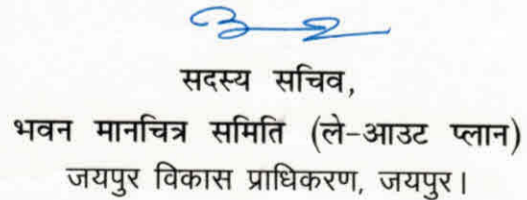 सदस्य सचिव,
भवन मानचित्र समिति (ले-आउट प्लान)
जयपुर विकास प्राधिकरण, जयपुर।